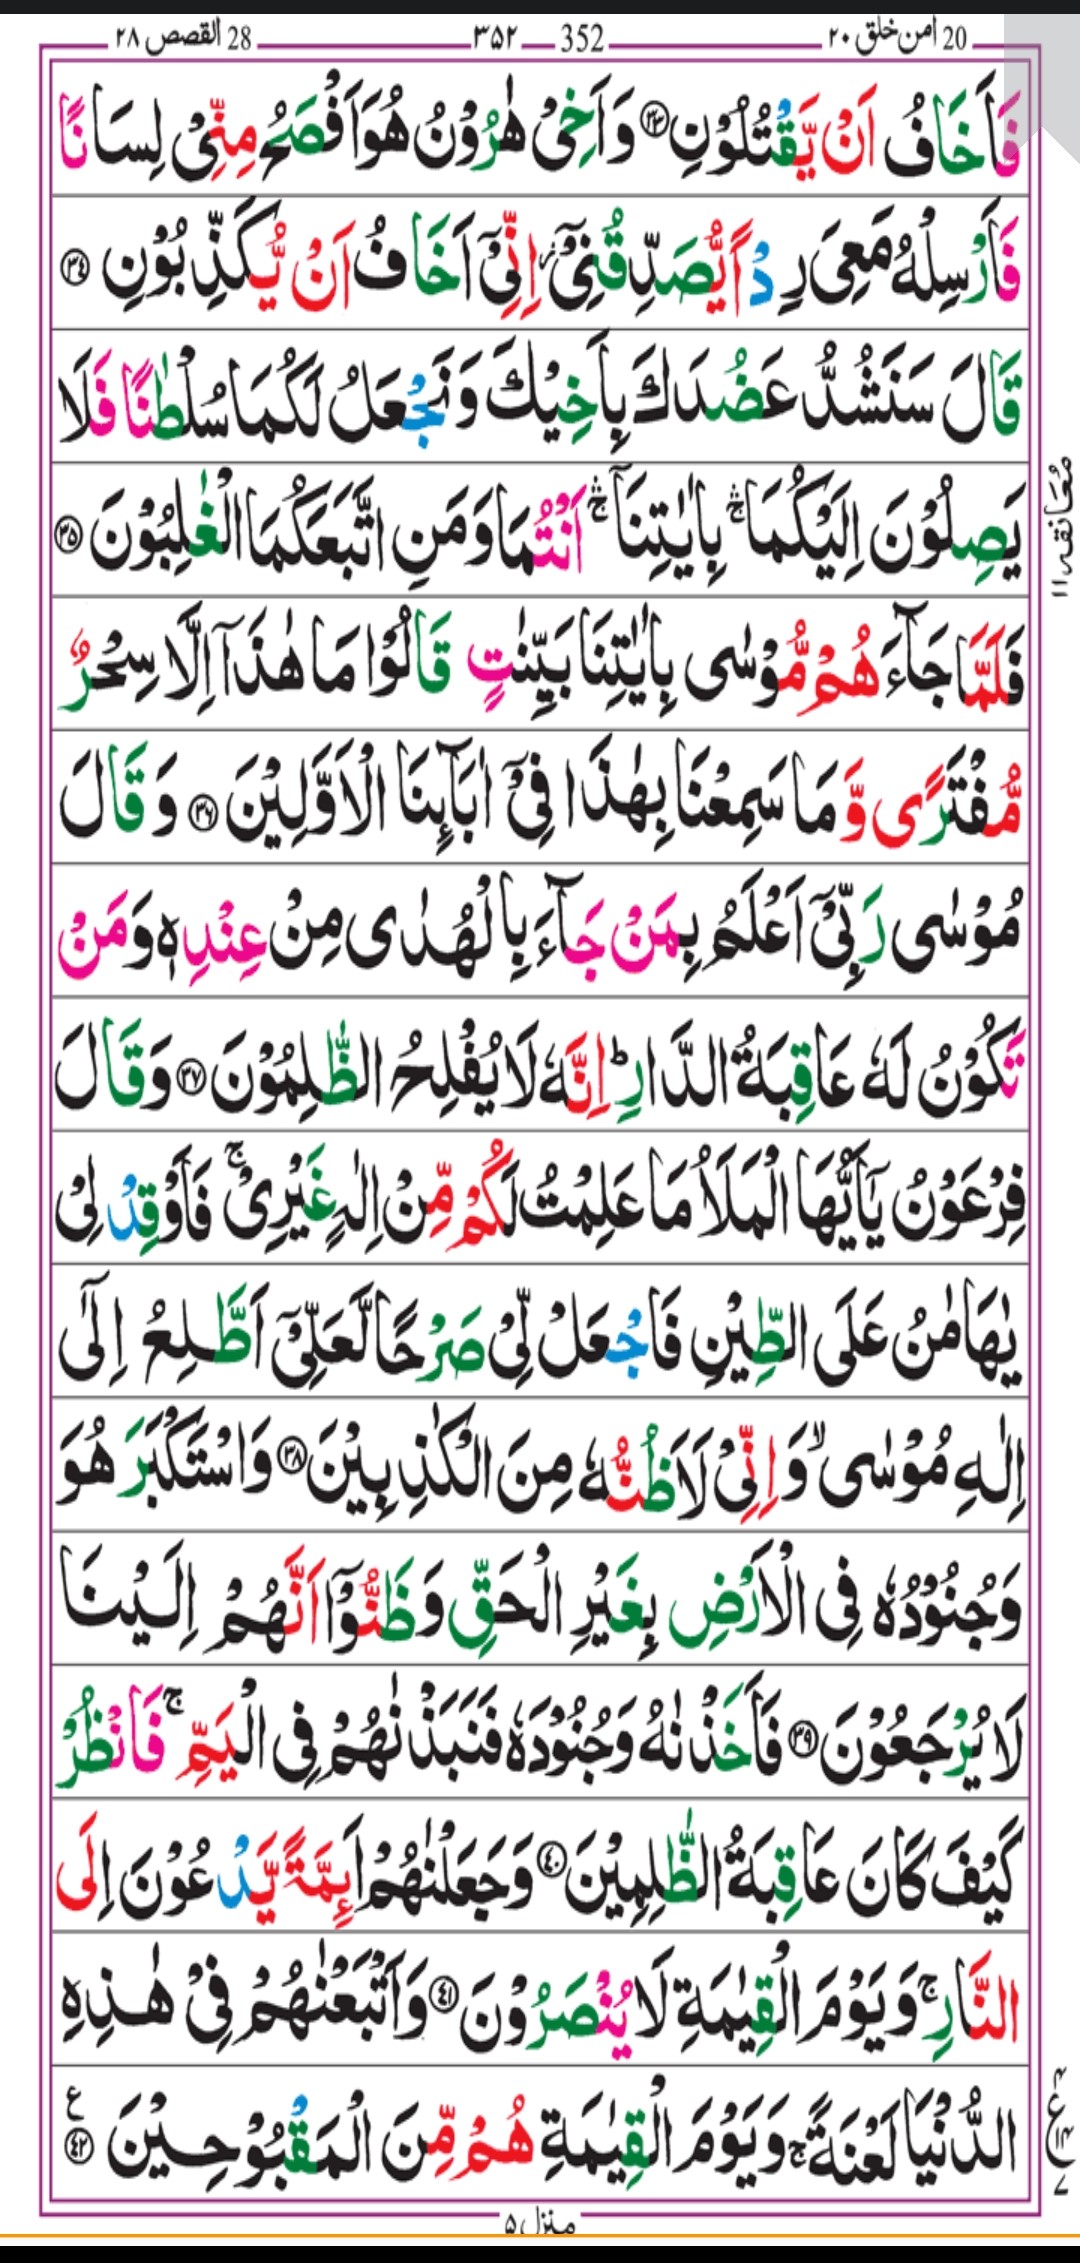 20 امن خلق ۲۰ 352 ۳۵۲ 28 القصص ۲۸
فَاَخَافُ اَنْ يَّقْتُلُوْنِ ۝۳۳ وَاَخِيْ هٰرُوْنُ هُوَ اَفْصَحُ مِنِّيْ لِسَانًا
فَاَرْسِلْهُ مَعِيَ رِدْاً يُّصَدِّقُنِيْٓ ؗ اِنِّيْٓ اَخَافُ اَنْ يُّكَذِّبُوْنِ ۝۳۴
قَالَ سَنَشُدُّ عَضُدَكَ بِاَخِيْكَ وَنَجْعَلُ لَكُمَا سُلْطٰنًا فَلَا
يَصِلُوْنَ اِلَيْكُمَا ۛۚ بِاٰيٰتِنَآ ۛۚ اَنْتُمَا وَمَنِ اتَّبَعَكُمَا الْغٰلِبُوْنَ ۝۳۵
معانقه ۱۱
فَلَمَّا جَآءَهُمْ مُّوْسٰى بِاٰيٰتِنَا بَيِّنٰتٍ قَالُوْا مَا هٰذَآ اِلَّا سِحْرٌ
مُّفْتَرًى وَّمَا سَمِعْنَا بِهٰذَا فِيْٓ اٰبَآئِنَا الْاَوَّلِيْنَ ۝۳۶ وَقَالَ
مُوْسٰى رَبِّيْٓ اَعْلَمُ بِمَنْ جَآءَ بِالْهُدٰى مِنْ عِنْدِهٖ وَمَنْ
تَكُوْنُ لَهٗ عَاقِبَةُ الدَّارِ ؕ اِنَّهٗ لَا يُفْلِحُ الظّٰلِمُوْنَ ۝۳۷ وَقَالَ
فِرْعَوْنُ يٰٓاَيُّهَا الْمَلَاُ مَا عَلِمْتُ لَكُمْ مِّنْ اِلٰهٍ غَيْرِيْ ۚ فَاَوْقِدْ لِيْ
يٰهَامٰنُ عَلَى الطِّيْنِ فَاجْعَلْ لِّيْ صَرْحًا لَّعَلِّيْٓ اَطَّلِعُ اِلٰٓى
اِلٰهِ مُوْسٰى ۙ وَاِنِّيْ لَاَظُنُّهٗ مِنَ الْكٰذِبِيْنَ ۝۳۸ وَاسْتَكْبَرَ هُوَ
وَجُنُوْدُهٗ فِي الْاَرْضِ بِغَيْرِ الْحَقِّ وَظَنُّوْٓا اَنَّهُمْ اِلَيْنَا
لَا يُرْجَعُوْنَ ۝۳۹ فَاَخَذْنٰهُ وَجُنُوْدَهٗ فَنَبَذْنٰهُمْ فِي الْيَمِّ ۚ فَانْظُرْ
كَيْفَ كَانَ عَاقِبَةُ الظّٰلِمِيْنَ ۝۴۰ وَجَعَلْنٰهُمْ اَئِمَّةً يَّدْعُوْنَ اِلَى
النَّارِ ۚ وَيَوْمَ الْقِيٰمَةِ لَا يُنْصَرُوْنَ ۝۴۱ وَاَتْبَعْنٰهُمْ فِيْ هٰذِهِ
الدُّنْيَا لَعْنَةً ۚ وَيَوْمَ الْقِيٰمَةِ هُمْ مِّنَ الْمَقْبُوْحِيْنَ ۝۴۲ ع
۴ ع ۱۴ ۷
منزل ۵